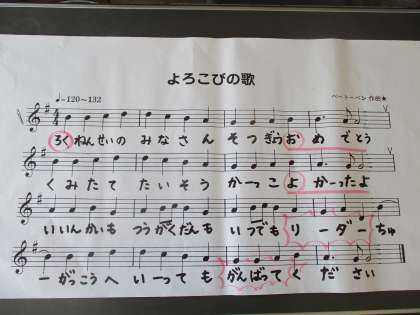 よろこびの歌
♩=120〜132
ベートーベン 作曲★
ろくねんせいの みなさん そつぎょう おめでとう
くみたてたいそう かーっこよかーったよ
いいんかいも つうがくだんも いつでも リーダー ちゅ
ーがっこうへ いーっても がんばって ください